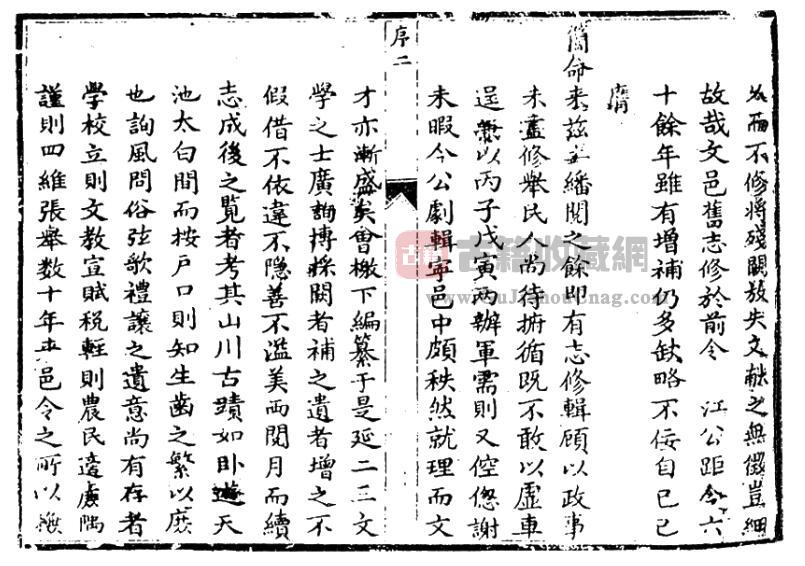 而不修将殘闕放失文獻之無徵豈細
故哉文邑舊志修於前令 江公距今六
十餘年雖有增補仍多缺略不佞自己巳
膺
簡命来茲土繙閱之餘即有志修輯顧以政事
未盡修舉民人尚待拊循既不敢以虛車
逞兼以丙子戊寅兩辦軍需則又倥偬謝
未暇今公劇輯寧邑中頗秩然就理而文
序二
才亦漸盛矣會檄下編纂于是延二三文
學之士廣詢博採闕者補之遺者增之不
假借不依違不隱善不溢美兩閱月而續
志成後之覽者考其山川古蹟如卧遊天
池太白間而按戶口則知生齒之繁以庶
也詢風問俗弦歌禮讓之遺意尚有存者
學校立則文教宣賦稅輕則農民遂廉隅
謹則四維張舉数十年来邑令之所以撫
古籍
古籍收藏網